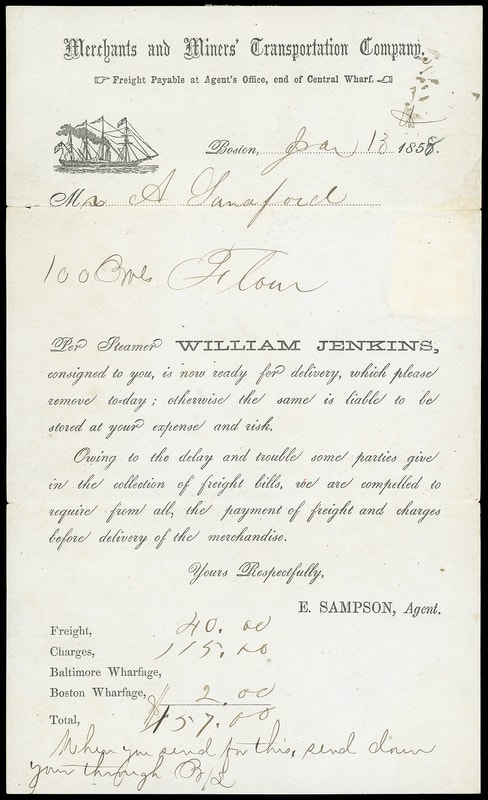 Merchants and Miners' Transportation Company.
Freight Payable at Agent's Office, end of Central Wharf.
Boston, Jan 13 1858.
Mr A Sanaford
100 Bbls Flour
Per Steamer WILLIAM JENKINS,
consigned to you, is now ready for delivery, which please
remove to-day; otherwise the same is liable to be
stored at your expense and risk.
Owing to the delay and trouble some parties give
in the collection of freight bills, we are compelled to
require from all, the payment of freight and charges
before delivery of the merchandise.
Yours Respectfully,
E. SAMPSON, Agent.
Freight, 40.00
Charges, 115.00
Baltimore Wharfage,
Boston Wharfage, 2.00
Total, $157.00
When you send for this, send down
your through B/L